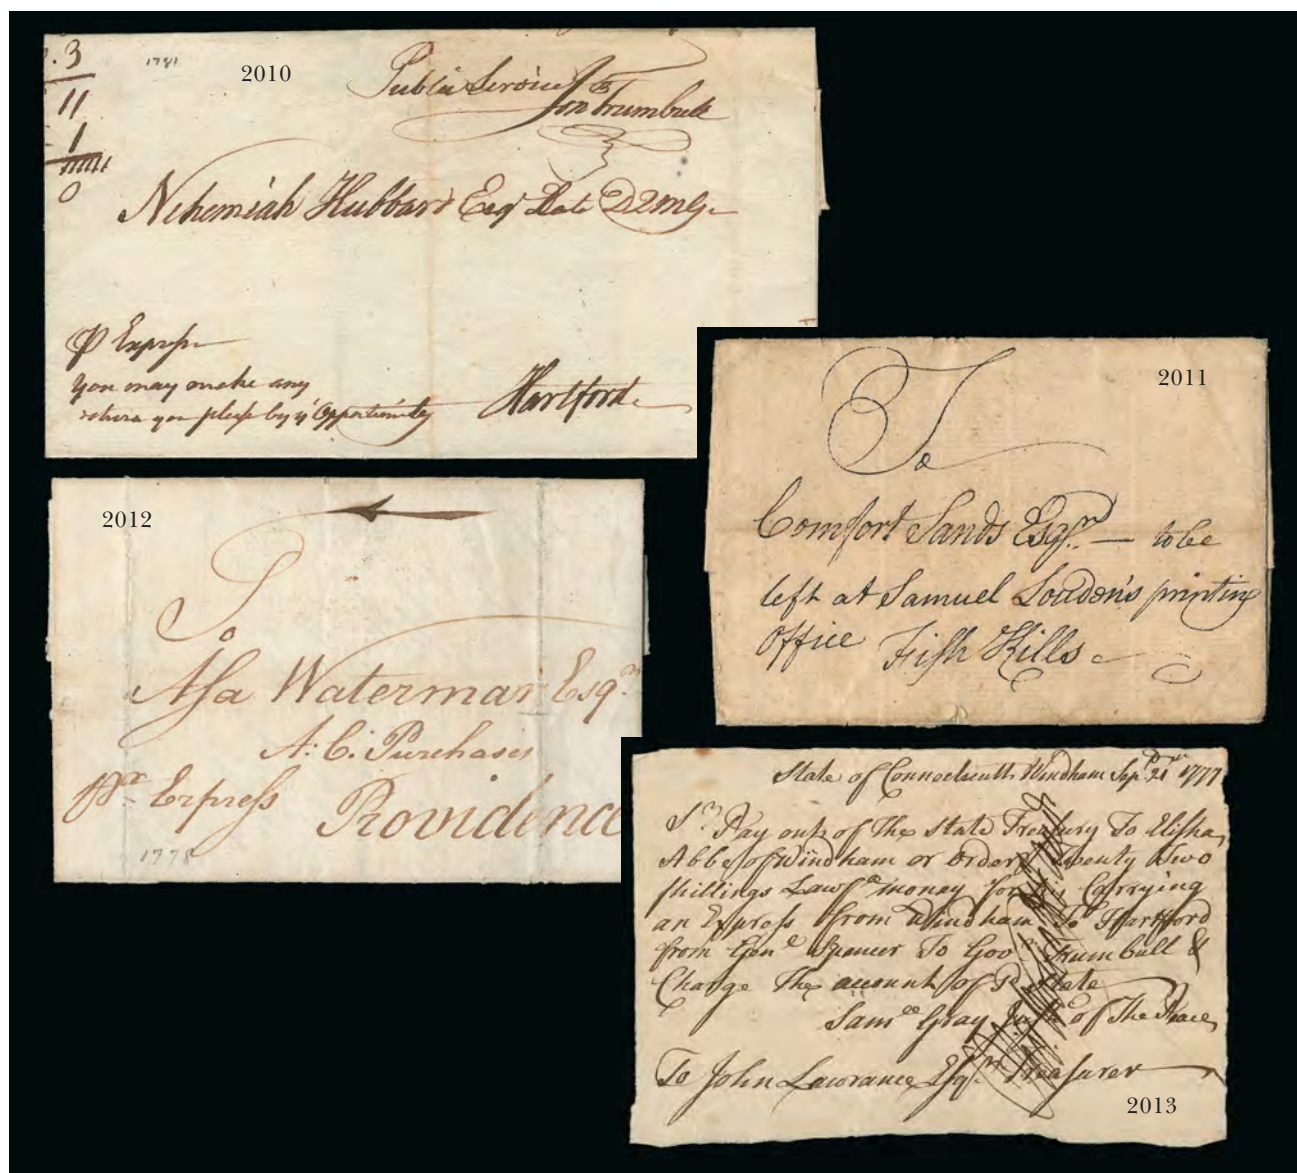 3
1781
2010
Public Service
Jon Trumbull
11
1
0
Nehemiah Hubbard Esqr Late DQMG
P Express
You may make any
return you please by ys Opportunity
Hartford
2011
To
Comfort Sands Esqr. — to be
left at Samuel Loudon's printing
Office Fish Kills
2012
To
Asa Waterman Esqr
A: C: Purchases
Pr Express Providence
1778
State of Connecticutt Windham Sepr 21st 1777
Sr Pay out of The State Treasury To Elisha
Abbe of Windham or order Twenty Two
shillings Lawfll money for his Carrying
an Express from Windham To Hartford
from Genl Spencer To Govr Trumbull &
Charge The account of State
Samll Gray Justce of The Peace
To John Lawrance Esqr Treasurer
2013